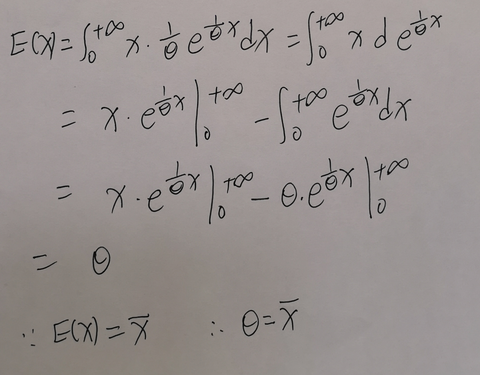 E(X)=∫₀^{+∞} x·\frac{1}{θ} e^{\frac{1}{θ}x}dx=∫₀^{+∞} x d e^{\frac{1}{θ}x}
= x·e^{\frac{1}{θ}x}|₀^{+∞} -∫₀^{+∞} e^{\frac{1}{θ}x}dx
= x·e^{\frac{1}{θ}x}|₀^{+∞} - θ·e^{\frac{1}{θ}x}|₀^{+∞}
= θ
∵ E(X)=x̄ ∴ θ=x̄